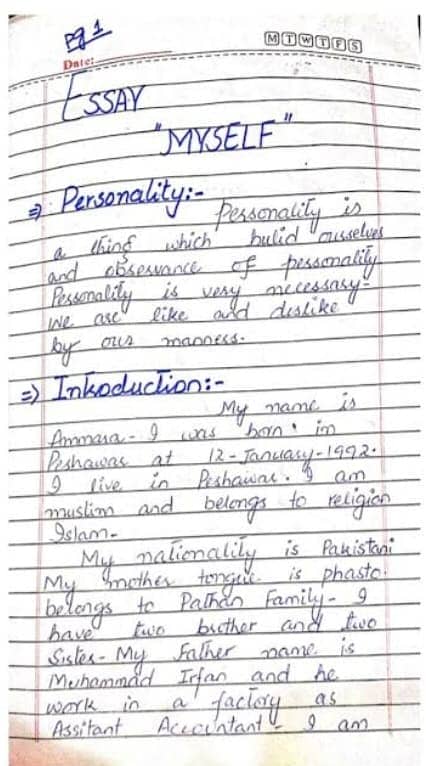 pg 1
M T W T F S
Date:
ESSAY
"MYSELF"
⇒ Personality:-
Personality is
a thing which bulid ousselves
and obsesvance of pessonality.
Pessonality is very necessasy-
we are like and dislike
by ours manness.
⇒ Inkoduction:-
My name is
Ammara - I was born in
Peshawar at 12-January-1992.
I live in Peshawar. I am
muslim and belongs to religion
Islam-
My nationality is Pakistani
My mother tongue is phasto.
belongs to Pathan Family- I
have two brother and two
Sister- My Father name is
Muhammad Irfan and he
work in a factory as
Assitant Accountant - I am